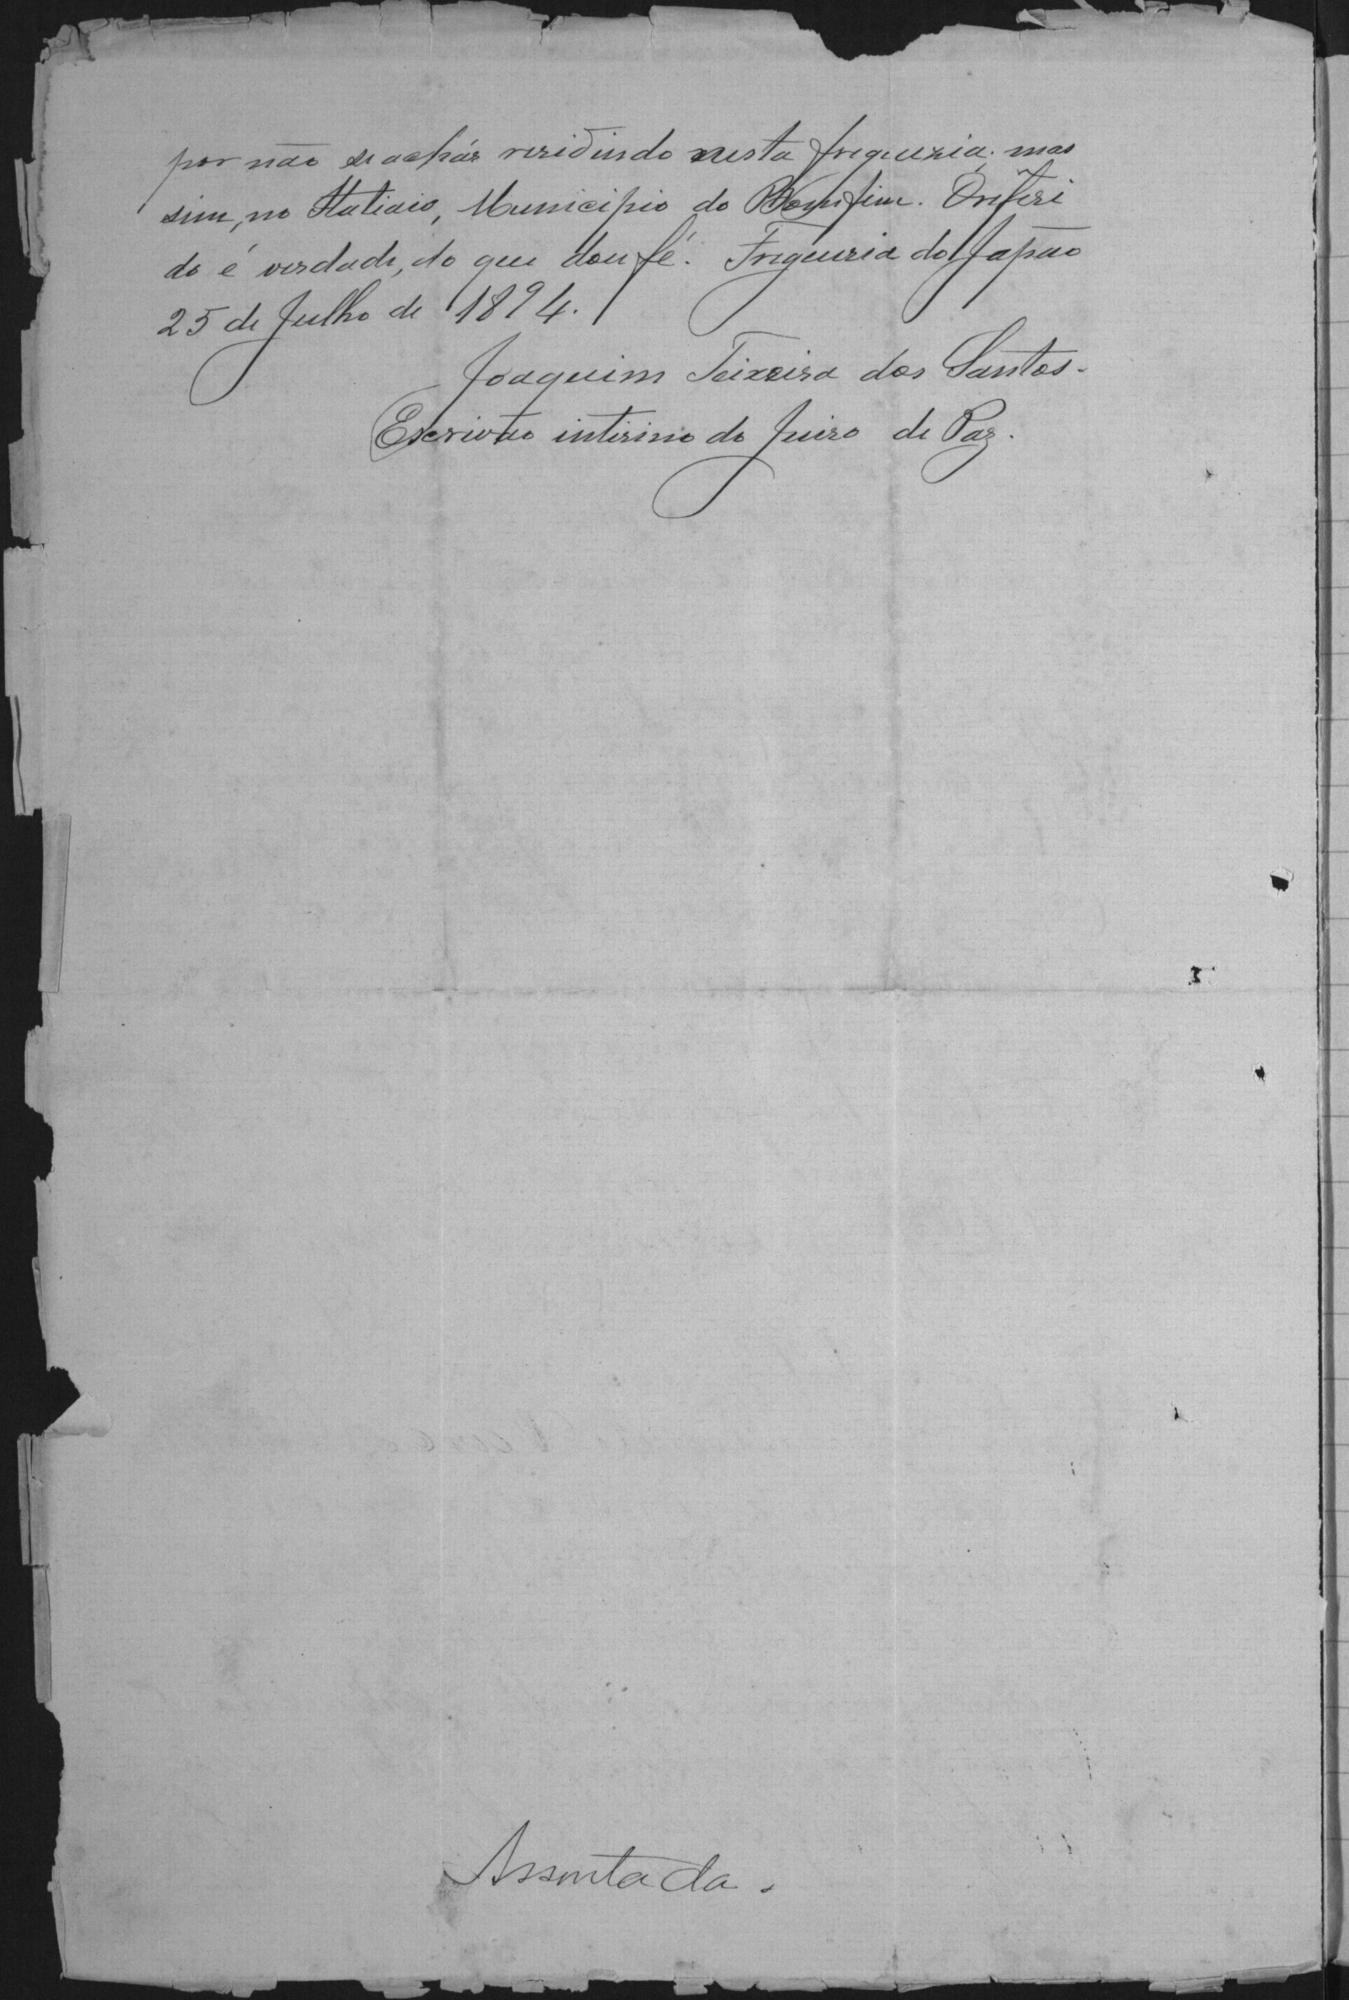 por não se achár residindo nesta freguezia; mas
sim, no Itatiaio, Municipio do Bomfim. O referi
do é verdade, do que dou fé. Freguezia do Japão
25 de Julho de 1894.
Joaquim Teixeira dos Santos.
Escrivão interino do Juizo de Paz.
Assentada.